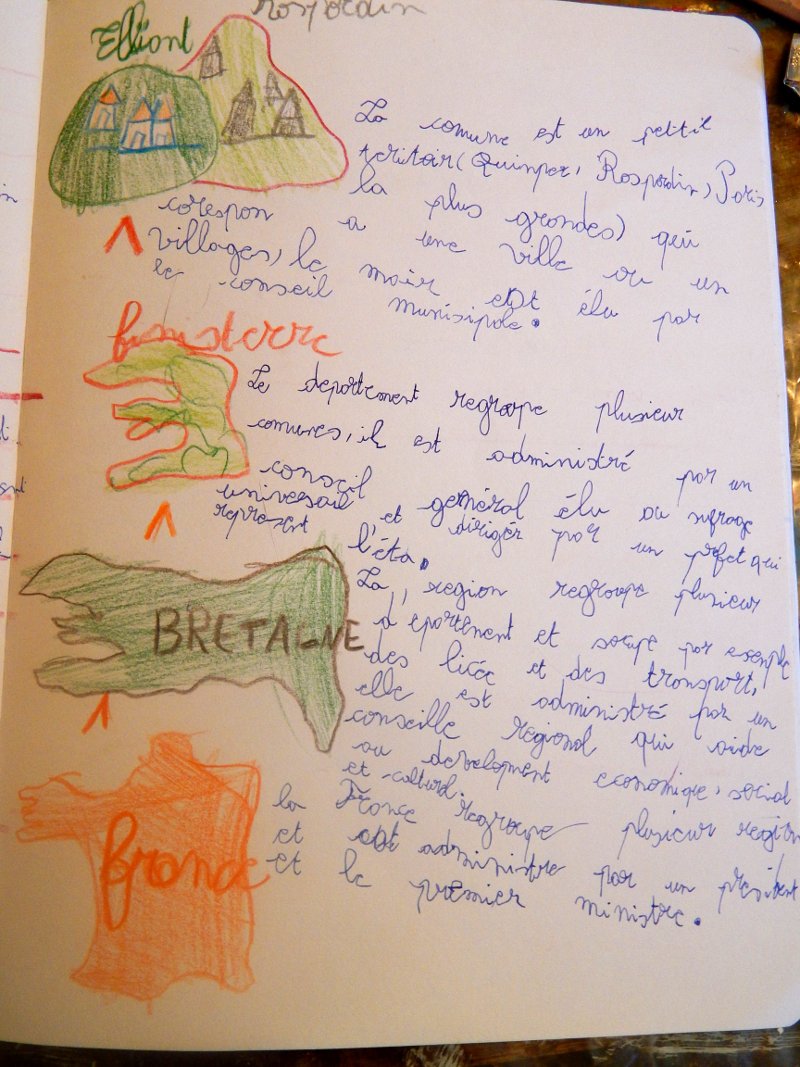 Rospordin
Elliant
La comune est un petit
teritoir (Quinper, Rospordin, Paris
la plus grandes) qui
corespon a une ville ou un
villages, le mair est élu par
le conseil munisipale.
finisterre
Le departement regroupe plusieur
comunes, il est administré par un
conseil général élu au sufrage
universail et dirigér par un prfet qui
represent l'éta.
La region regroupe plusieur
departement et socupe par exemple
des licée et des transport,
elle est administré par un
conseille regional qui aide
au development economique, social
et culturel.
BRETAGNE
la France regroupe plusieur region
et est administre par un president
et le premier ministre.
france